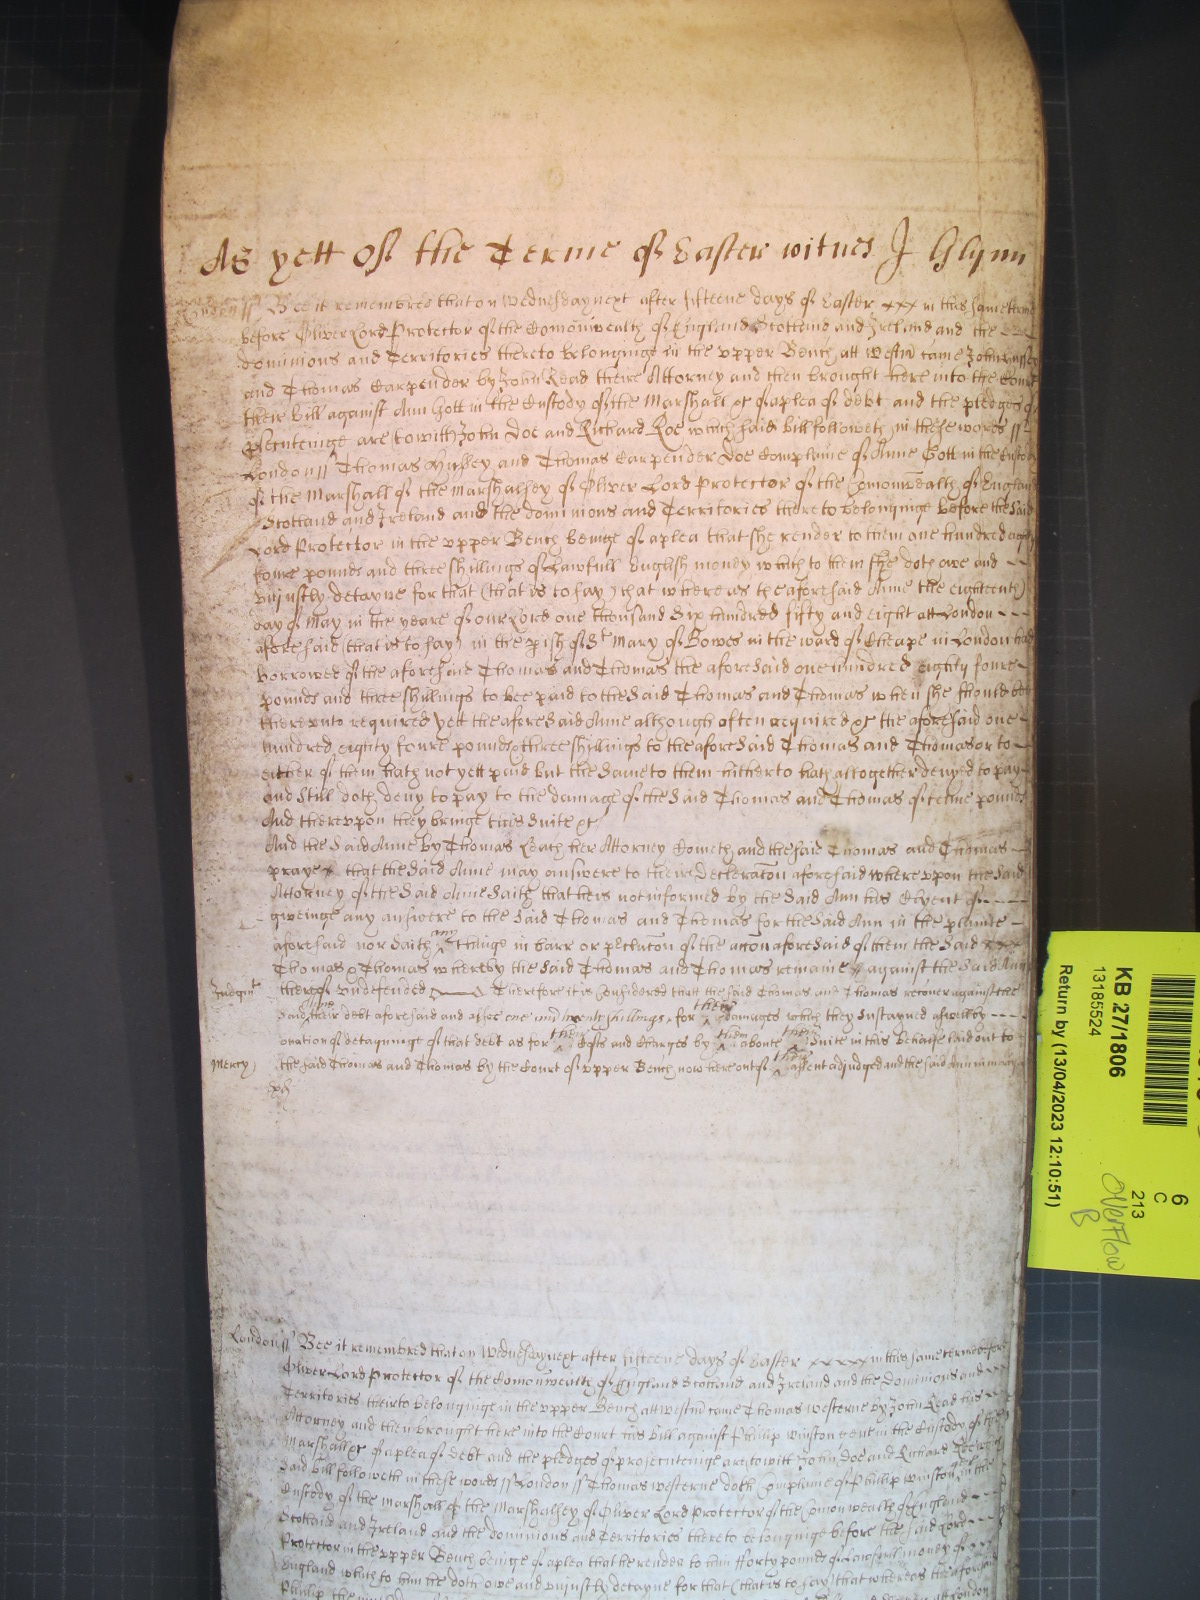 As yett of the Terme of Easter witnes J Glynn
London ss Bee it remembred that on Wednesday next after fifteene days of Easter xxx in this same terme
before Oliver Lord Protector of the Comonwealth of England Scotland and Ireland and the
dominions and Territories thereto belonginge in the upper Bench att Westm came
and Thomas Carpender by John Read theire Attorney and then brought here into the Court
their bill against Ann in the Custody of the Marshall &c of a plea of debt and the pledges of
prosecuteinge are (to with) John Doe and Richard Roe which said bill followeth in these words ss
London ss Thomas Hussey and Thomas Carpender doe Complaine of Anne in the Custody
of the Marshall of the Marshalsey of Oliver Lord Protector of the Comonwealth of England
Scotland and Ireland and the dominions and Territories thereto belonginge before the said
Lord Protector in the upper Bench beinge of a plea that she render to them one hundred eighty
foure pounds and three shillings of Lawfull English money which to them she doth owe and
unjustly detayne for that (that is to say) that whereas the aforesaid Anne the eighteenth
day of May in the yeare of our Lord one thousand six hundred fifty and eight att London
aforesaid (that is to say) in the pish of St Mary of Bowes in the ward of Cheape in London had
borrowed of the aforesaid Thomas and Thomas the aforesaid one hundred eighty foure
pounds and three shillings to bee paid to the said Thomas and Thomas when she should bee
thereunto required yett the aforesaid Anne although often required &c the aforesaid one
hundred eighty foure pounds & three shillings to the aforesaid Thomas and Thomas or to
either of them hath not yett paid but the same to them hitherto hath altogether denyed to pay
and still doth deny to pay to the damage of the said Thomas and Thomas of tenne pounds
And thereupon they bringe this suite &c
And the said Anne by Thomas Leach her Attorney Cometh and the said Thomas and Thomas
praye that the said Anne may answere to their declaracon aforesaid whereupon the said
Attorney of the said Anne saith that he is not informed by the said Ann his Clyent of
giveinge any answere to the said Thomas and Thomas for the said Ann in the plainte
aforesaid nor saith any thinge in barr or preclucon of the accon aforesaid of them the said xxx
Thomas & Thomas whereby the said Thomas and Thomas remaine against the said Ann
Judgmt thereof undefended Therefore it is considered that the said Thomas and Thomas recover against the
said Anne their debt aforesaid and alsoe shillings for their damages which they sustayned aswell by
occasion of detayninge of that debt as for their Costs and Charges by them aboute their suite in this behalfe laid out to
Mercy the said Thomas and Thomas by the Court of upper Bench now here out of their assent adjudged and the said Ann in mercy
&c
London ss Bee it remembred that on Wednesday next after fifteene days of Easter xxxxx in this same terme before
Oliver Lord Protector of the Comonwealth of England Scotland and Ireland and the Dominions and
Territories thereto belonginge in the upper Bench att Westm came Thomas Westerne by John Read his
Attorney and then brought here into the Court his bill against Phillip Winston in the Custody of the
Marshall &c of a plea of debt and the pledges of prosecuteinge are to witt John Doe and Richard Roe which
said bill followeth in these words ss London ss Thomas Westerne doth Complaine of Philip Winston in the
Custody of the Marshall of the Marshalsey of Oliver Lord Protector of the Comonwealth of England
Scotland and Ireland and the dominions and Territories thereto belonginge before the said Lord
Protector in the upper Bench beinge of a plea that he render to him fforty pounds of Lawfull money of
England which to him he doth owe and unjustly detayne for that (that is to say) that whereas the aforesaid
Philip the att London
KB 27/1806
13185524
Return by (13/04/2023 12:10:51)
6
C
213
Overflow
B